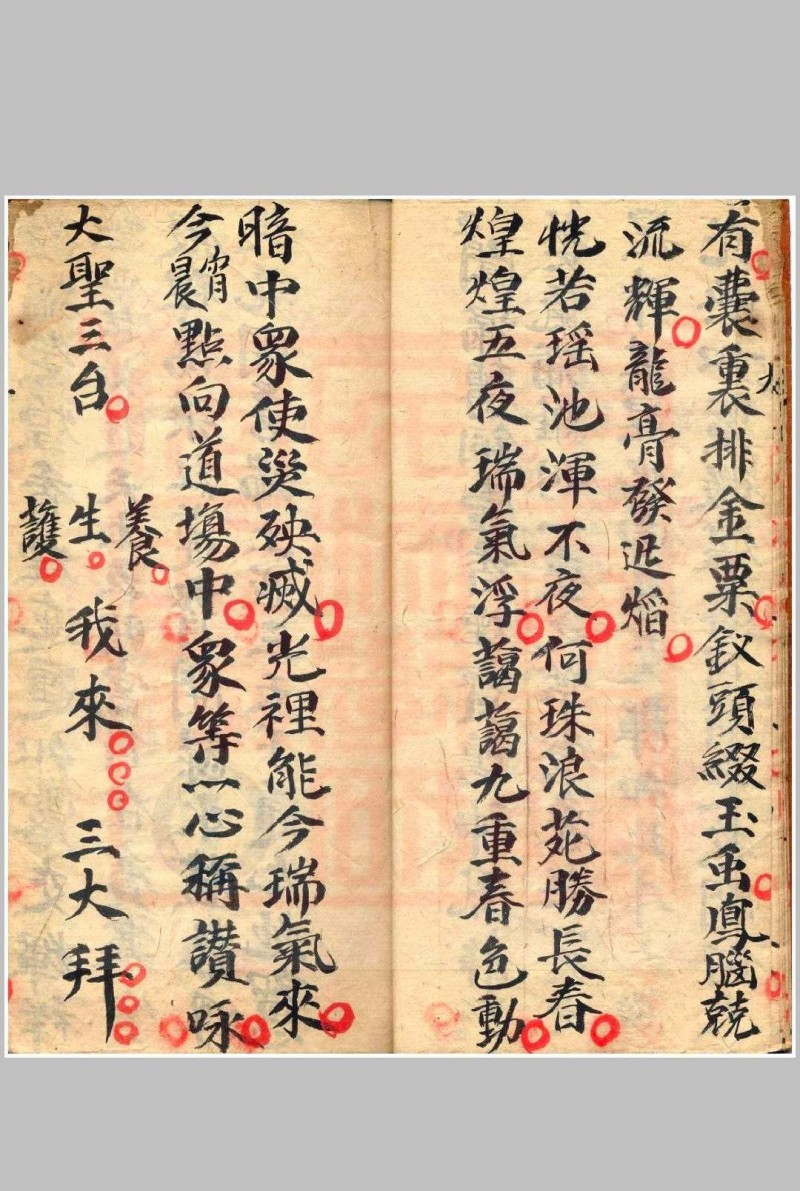 有囊裏排金粟釵頭綴玉虫鳳腦兢
流輝龍膏發迅焰
恍若瑶池渾不夜何珠浪苑勝長春
煌煌五夜瑞氣浮藹藹九重春色動
暗中衆使災殃滅光裡能今瑞氣來
今宵晨點向道塲中衆等一心稱讃咏
大聖三台
養
生
護
我來
三大拜